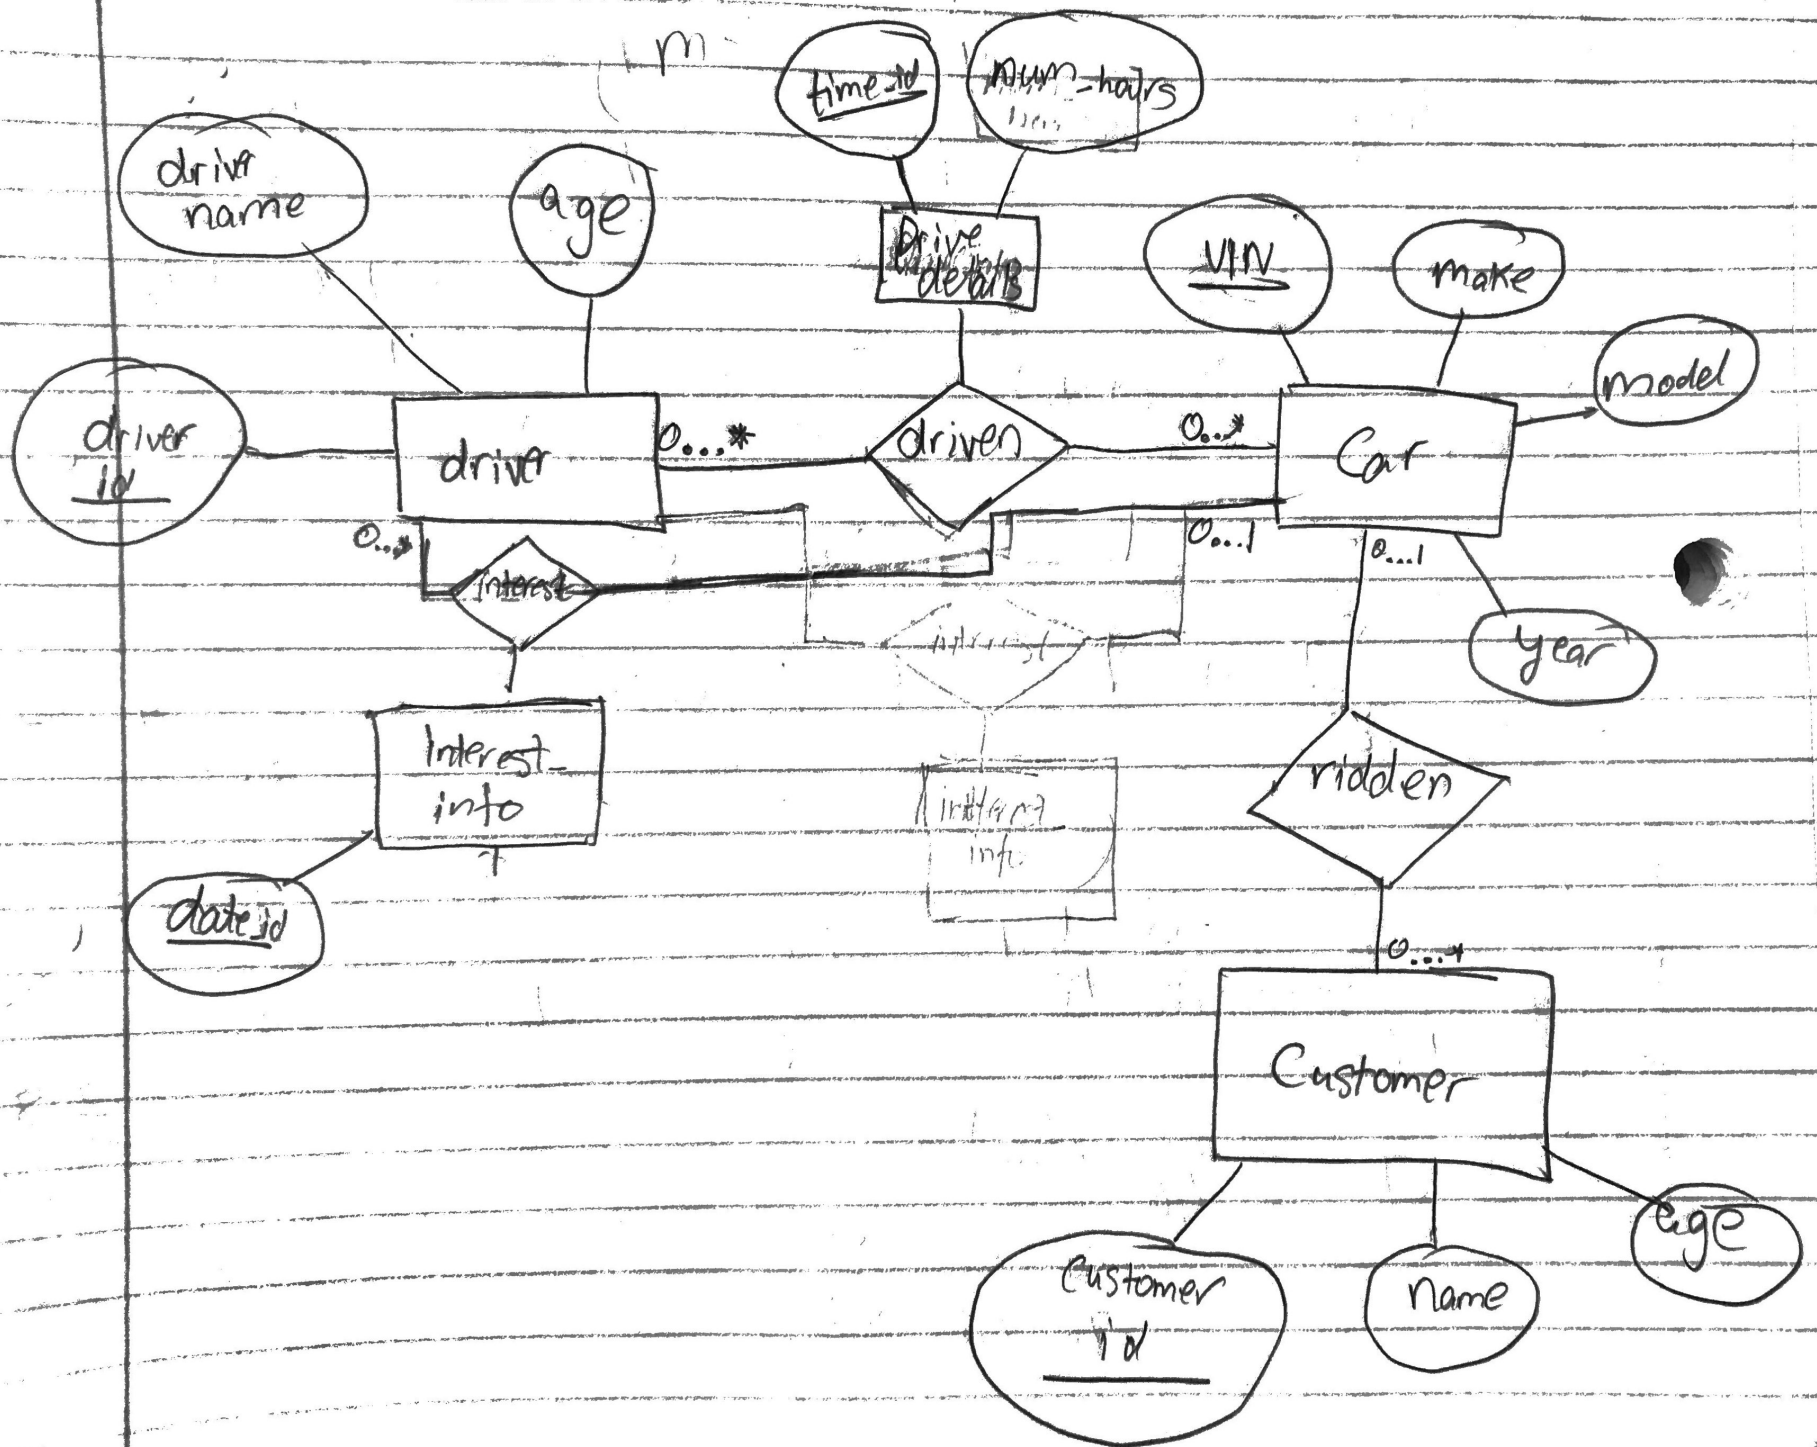 m
time_id
num_hours
driver
name
age
Drive
details
VIN
make
model
driver
id
driver
0...*
driven
0...*
Car
0...*
Interest
0...1
0...1
year
interest
Interest_
info
ridden
interest
info
date_id
0...*
Customer
Customer
id
name
age